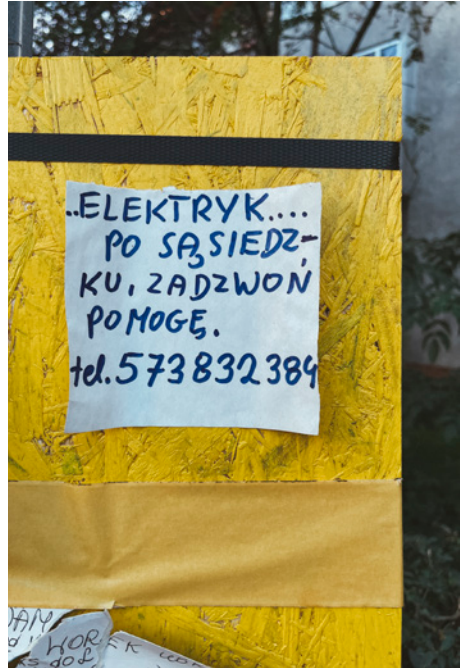 ..ELEKTRYK....
PO SĄSIEDZ-
KU, ZADZWOŃ
POMOGĘ.
tel. 573832384
WOREK